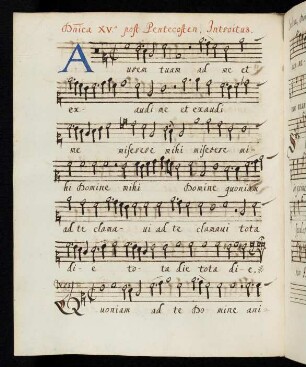 Dñica XV.ª post Pentecosten, Introitus.
Aurem tuam ad me et
ex- audi me et exaudi
me miserere mihi miserere mi-
hi Domine mihi Domine quoniam
ad te clama- vi ad te clamavi tota
di- e to- ta die tota di e.
Quoniam ad te Domine ani